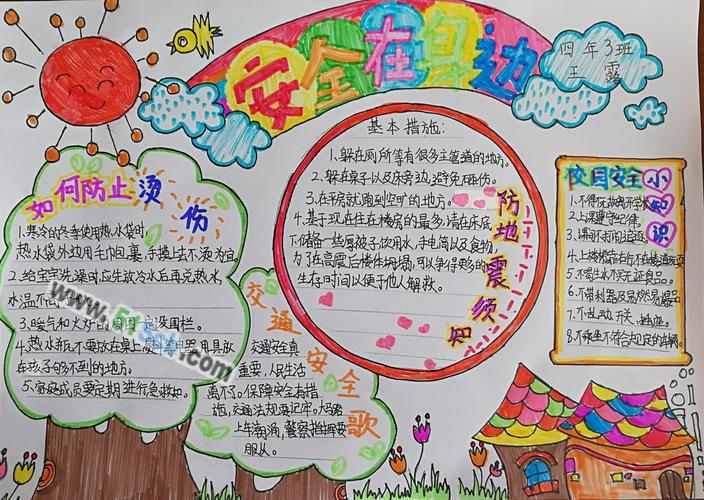 安全在身边
四年3班
王露
如何防止烫伤
1.寒冷的冬季使用热水袋时,
热水袋外边用毛巾包裹,手摸上去不烫为宜.
2.给宝宝洗澡时应先放冷水后再兑热水,
水温不高
3.暖气和火炉的周围 设围栏.
4.热水瓶不要放在桌上
在孩子够不到的地方.
5.家庭成员要定期进行急救
www.
交通安全歌
交通安全真
重要,人民生活
离不了。保障安全有措
施,交通法规要记牢。大马路
上车辆涌,警察指挥要
服从。
基本措施:
1.躲在厕所等有很多主管道的地方。
2.躲在桌子以及床旁边,避免压伤。
3.在平房就跑到空旷的地方。
4.基于现在住在楼房的最多,请在床底
下储备一些厚被子饮用水,手电筒以及食物,
为了在高震后楼体坍塌,可以争得更多的
生存时间以便于他人解救。
防地震须知
校园安全小知识
1.不得无故离开学校
2.上课遵守纪律。
3.课间不打闹追逐。
4.上楼梯靠右行不在楼道
5.不喝生水不买三无食品。
6.不带利器及易燃易爆品
7.不乱动开关、插座。
8.不乘坐不符合规定的车辆。